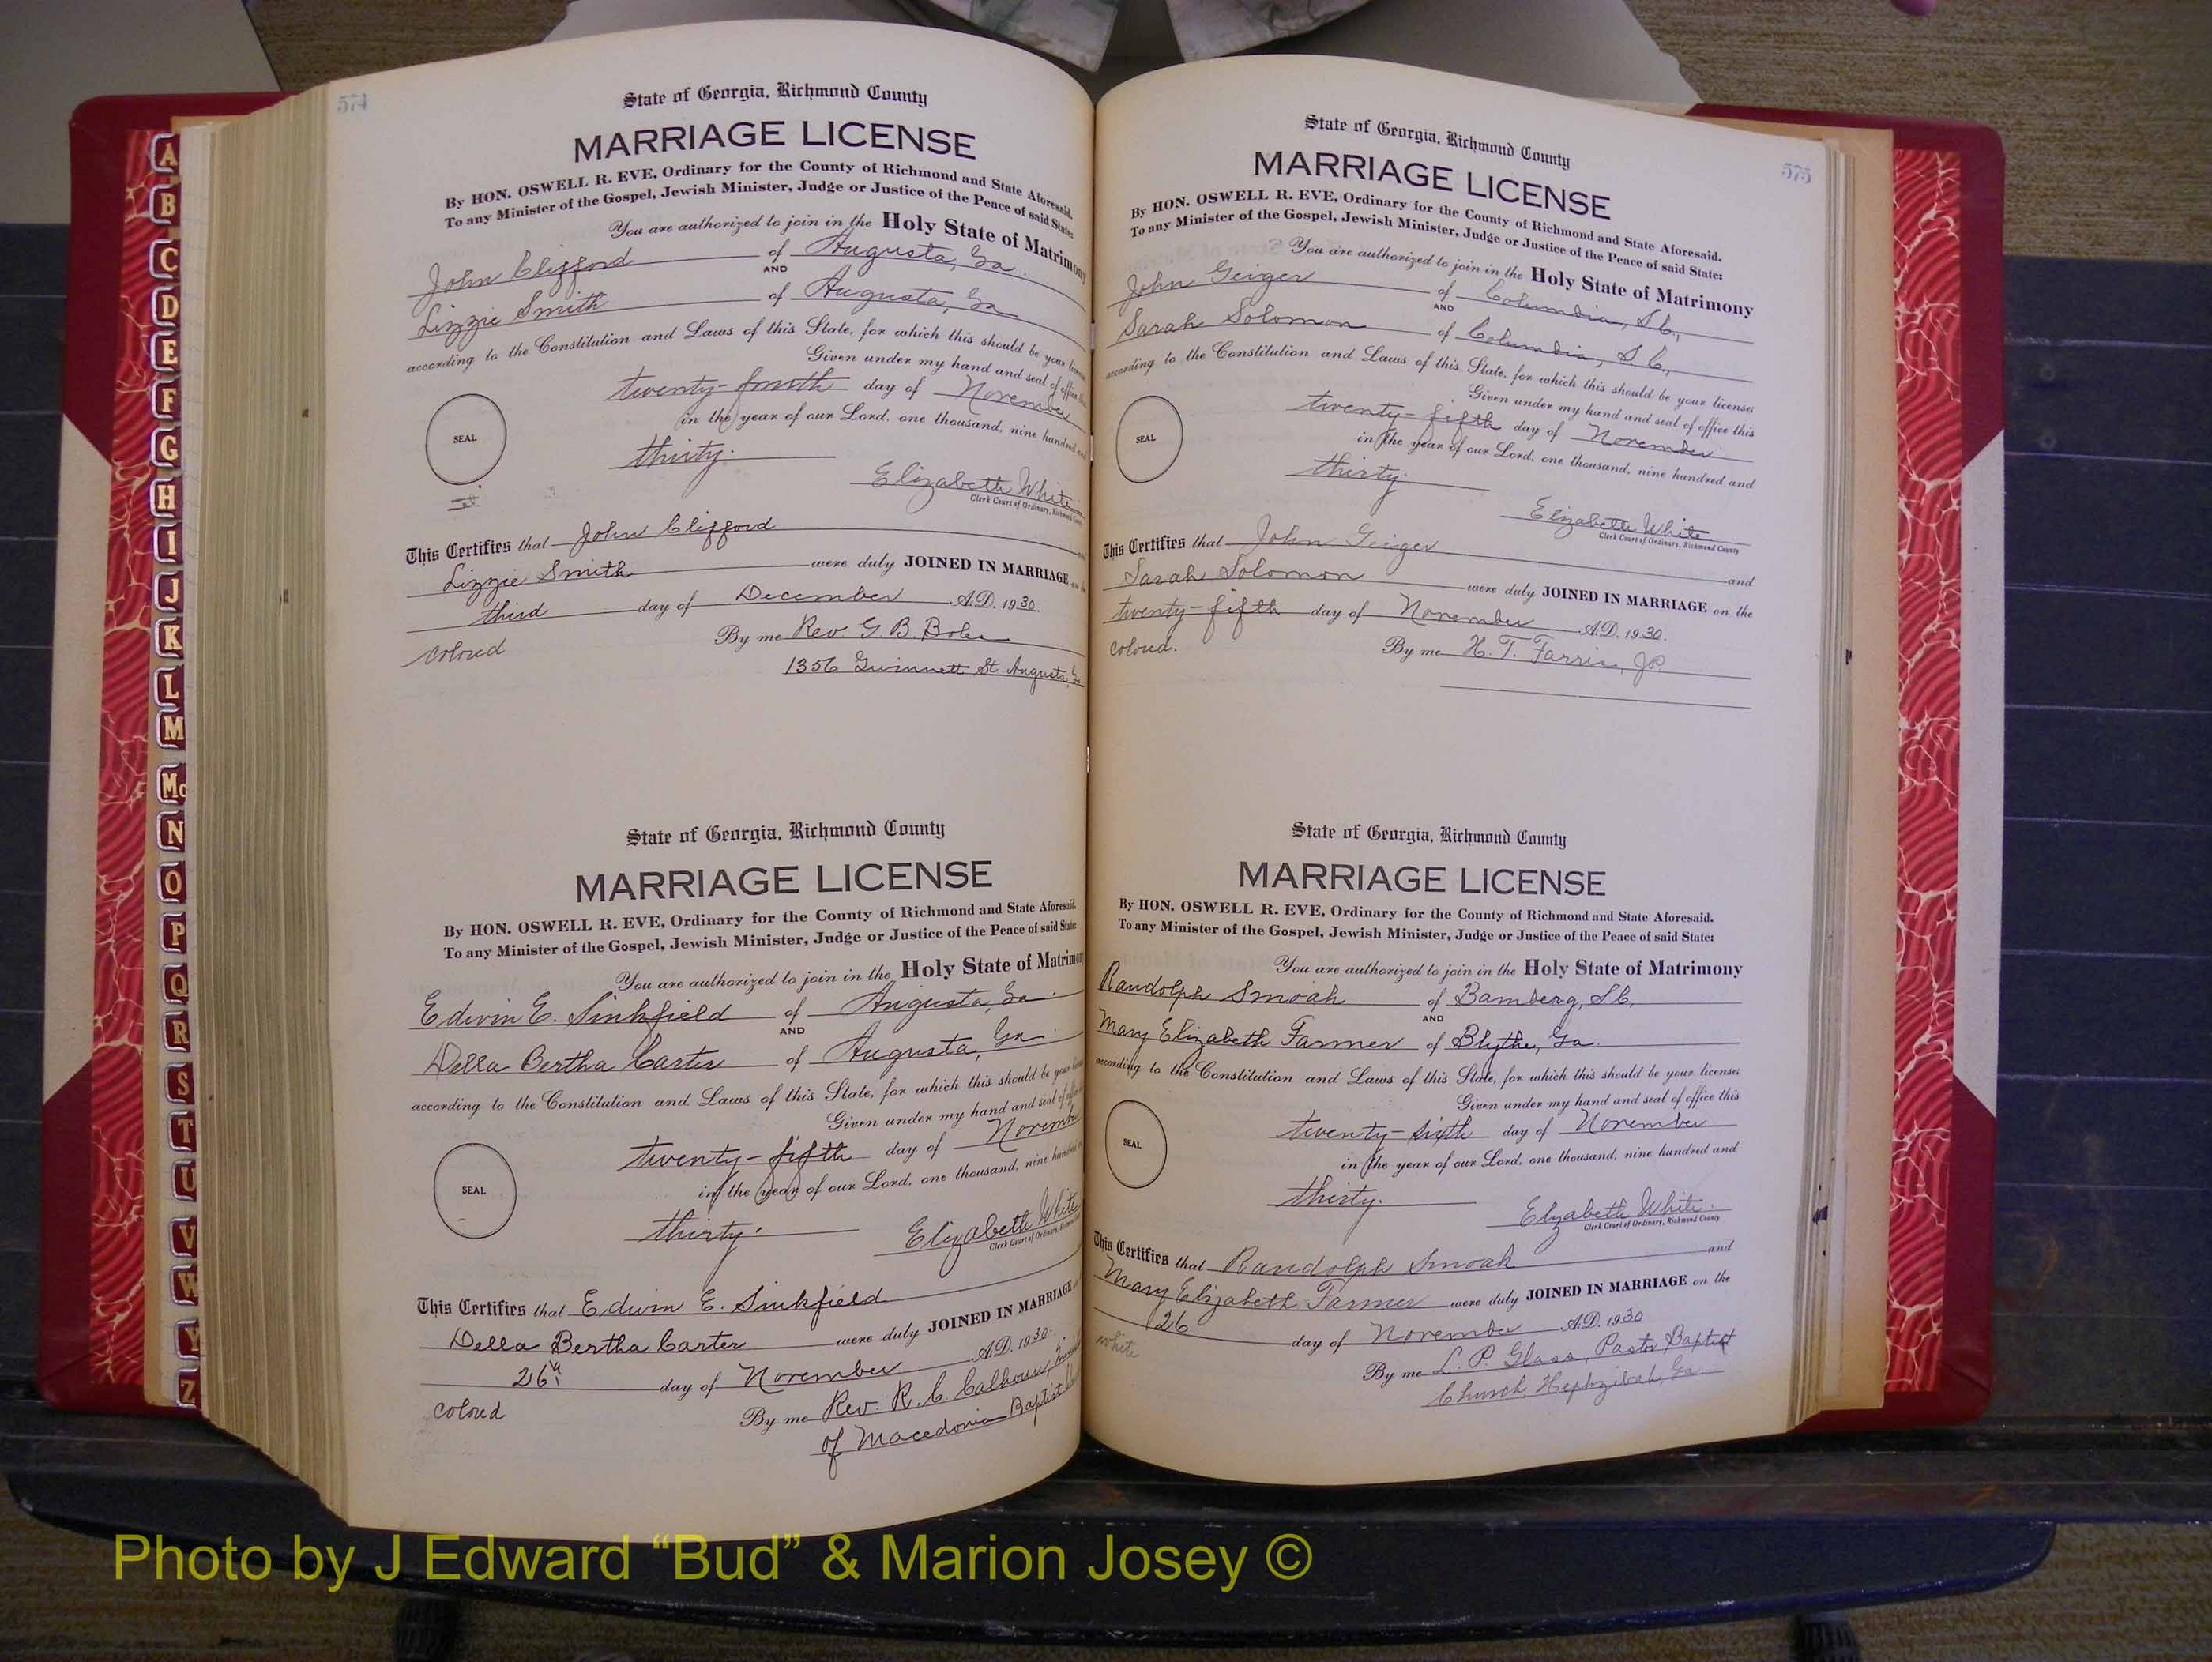 574
State of Georgia, Richmond County
MARRIAGE LICENSE
By HON. OSWELL R. EVE, Ordinary for the County of Richmond and State Aforesaid.
To any Minister of the Gospel, Jewish Minister, Judge or Justice of the Peace of said State:
You are authorized to join in the Holy State of Matrimony
John Clifford of Augusta, Ga.
AND
Lizzie Smith of Augusta, Ga
according to the Constitution and Laws of this State, for which this should be your
Given under my hand and seal of office
twenty-fourth day of November
in the year of our Lord, one thousand, nine hundred
SEAL
thirty.
Elizabeth White
Clerk Court of Ordinary, Richmond
This Certifies that John Clifford
Lizzie Smith were duly JOINED IN MARRIAGE
third day of December A.D. 1930.
colored By me Rev. G. B.
1356 Gwinnett St. Augusta, Ga
State of Georgia, Richmond County
MARRIAGE LICENSE
By HON. OSWELL R. EVE, Ordinary for the County of Richmond and State Aforesaid.
To any Minister of the Gospel, Jewish Minister, Judge or Justice of the Peace of said State:
You are authorized to join in the Holy State of Matrimony
Edwin E. Sinkfield of Augusta, Ga.
AND
Della Bertha Carter of Augusta, Ga
according to the Constitution and Laws of this State, for which this should be your
Given under my hand and seal of
twenty-fifth day of November
SEAL
in the year of our Lord, one thousand, nine hundred
thirty.
Elizabeth White
Clerk Court of Ordinary,
This Certifies that Edwin E. Sinkfield
Della Bertha Carter were duly JOINED IN MARRIAGE
26th day of November A.D. 1930.
colored By me Rev. R. C. Calhoun,
of Macedonia Baptist
575
State of Georgia, Richmond County
MARRIAGE LICENSE
By HON. OSWELL R. EVE, Ordinary for the County of Richmond and State Aforesaid.
To any Minister of the Gospel, Jewish Minister, Judge or Justice of the Peace of said State:
You are authorized to join in the Holy State of Matrimony
John Geiger of Columbia, S.C.,
AND
Sarah Solomon of Columbia, S.C.,
according to the Constitution and Laws of this State, for which this should be your licenses
Given under my hand and seal of office this
twenty-fifth day of November
SEAL
in the year of our Lord, one thousand, nine hundred and
thirty.
Elizabeth White
Clerk Court of Ordinary, Richmond County
This Certifies that John Geiger and
Sarah Solomon were duly JOINED IN MARRIAGE on the
twenty-fifth day of November A.D. 1930.
colored. By me H. T. Farris, JP
State of Georgia, Richmond County
MARRIAGE LICENSE
By HON. OSWELL R. EVE, Ordinary for the County of Richmond and State Aforesaid.
To any Minister of the Gospel, Jewish Minister, Judge or Justice of the Peace of said State:
You are authorized to join in the Holy State of Matrimony
Randolph Smoak of Bamberg, S.C.
AND
Mary Elizabeth Farmer of Blythe, Ga.
according to the Constitution and Laws of this State, for which this should be your licenses
Given under my hand and seal of office this
twenty-sixth day of November
SEAL
in the year of our Lord, one thousand, nine hundred and
thirty.
Elizabeth White.
Clerk Court of Ordinary, Richmond County
This Certifies that Randolph Smoak and
Mary Elizabeth Farmer were duly JOINED IN MARRIAGE on the
26 day of November A.D. 1930
white By me L. P. Glass, Pastor Baptist
Church, Hephzibah, Ga.
A
B
C
D
E
F
G
H
I
J
K
L
M
Mc
N
O
P
Q
R
S
T
U
V
W
Y
Z
Photo by J Edward “Bud” & Marion Josey ©